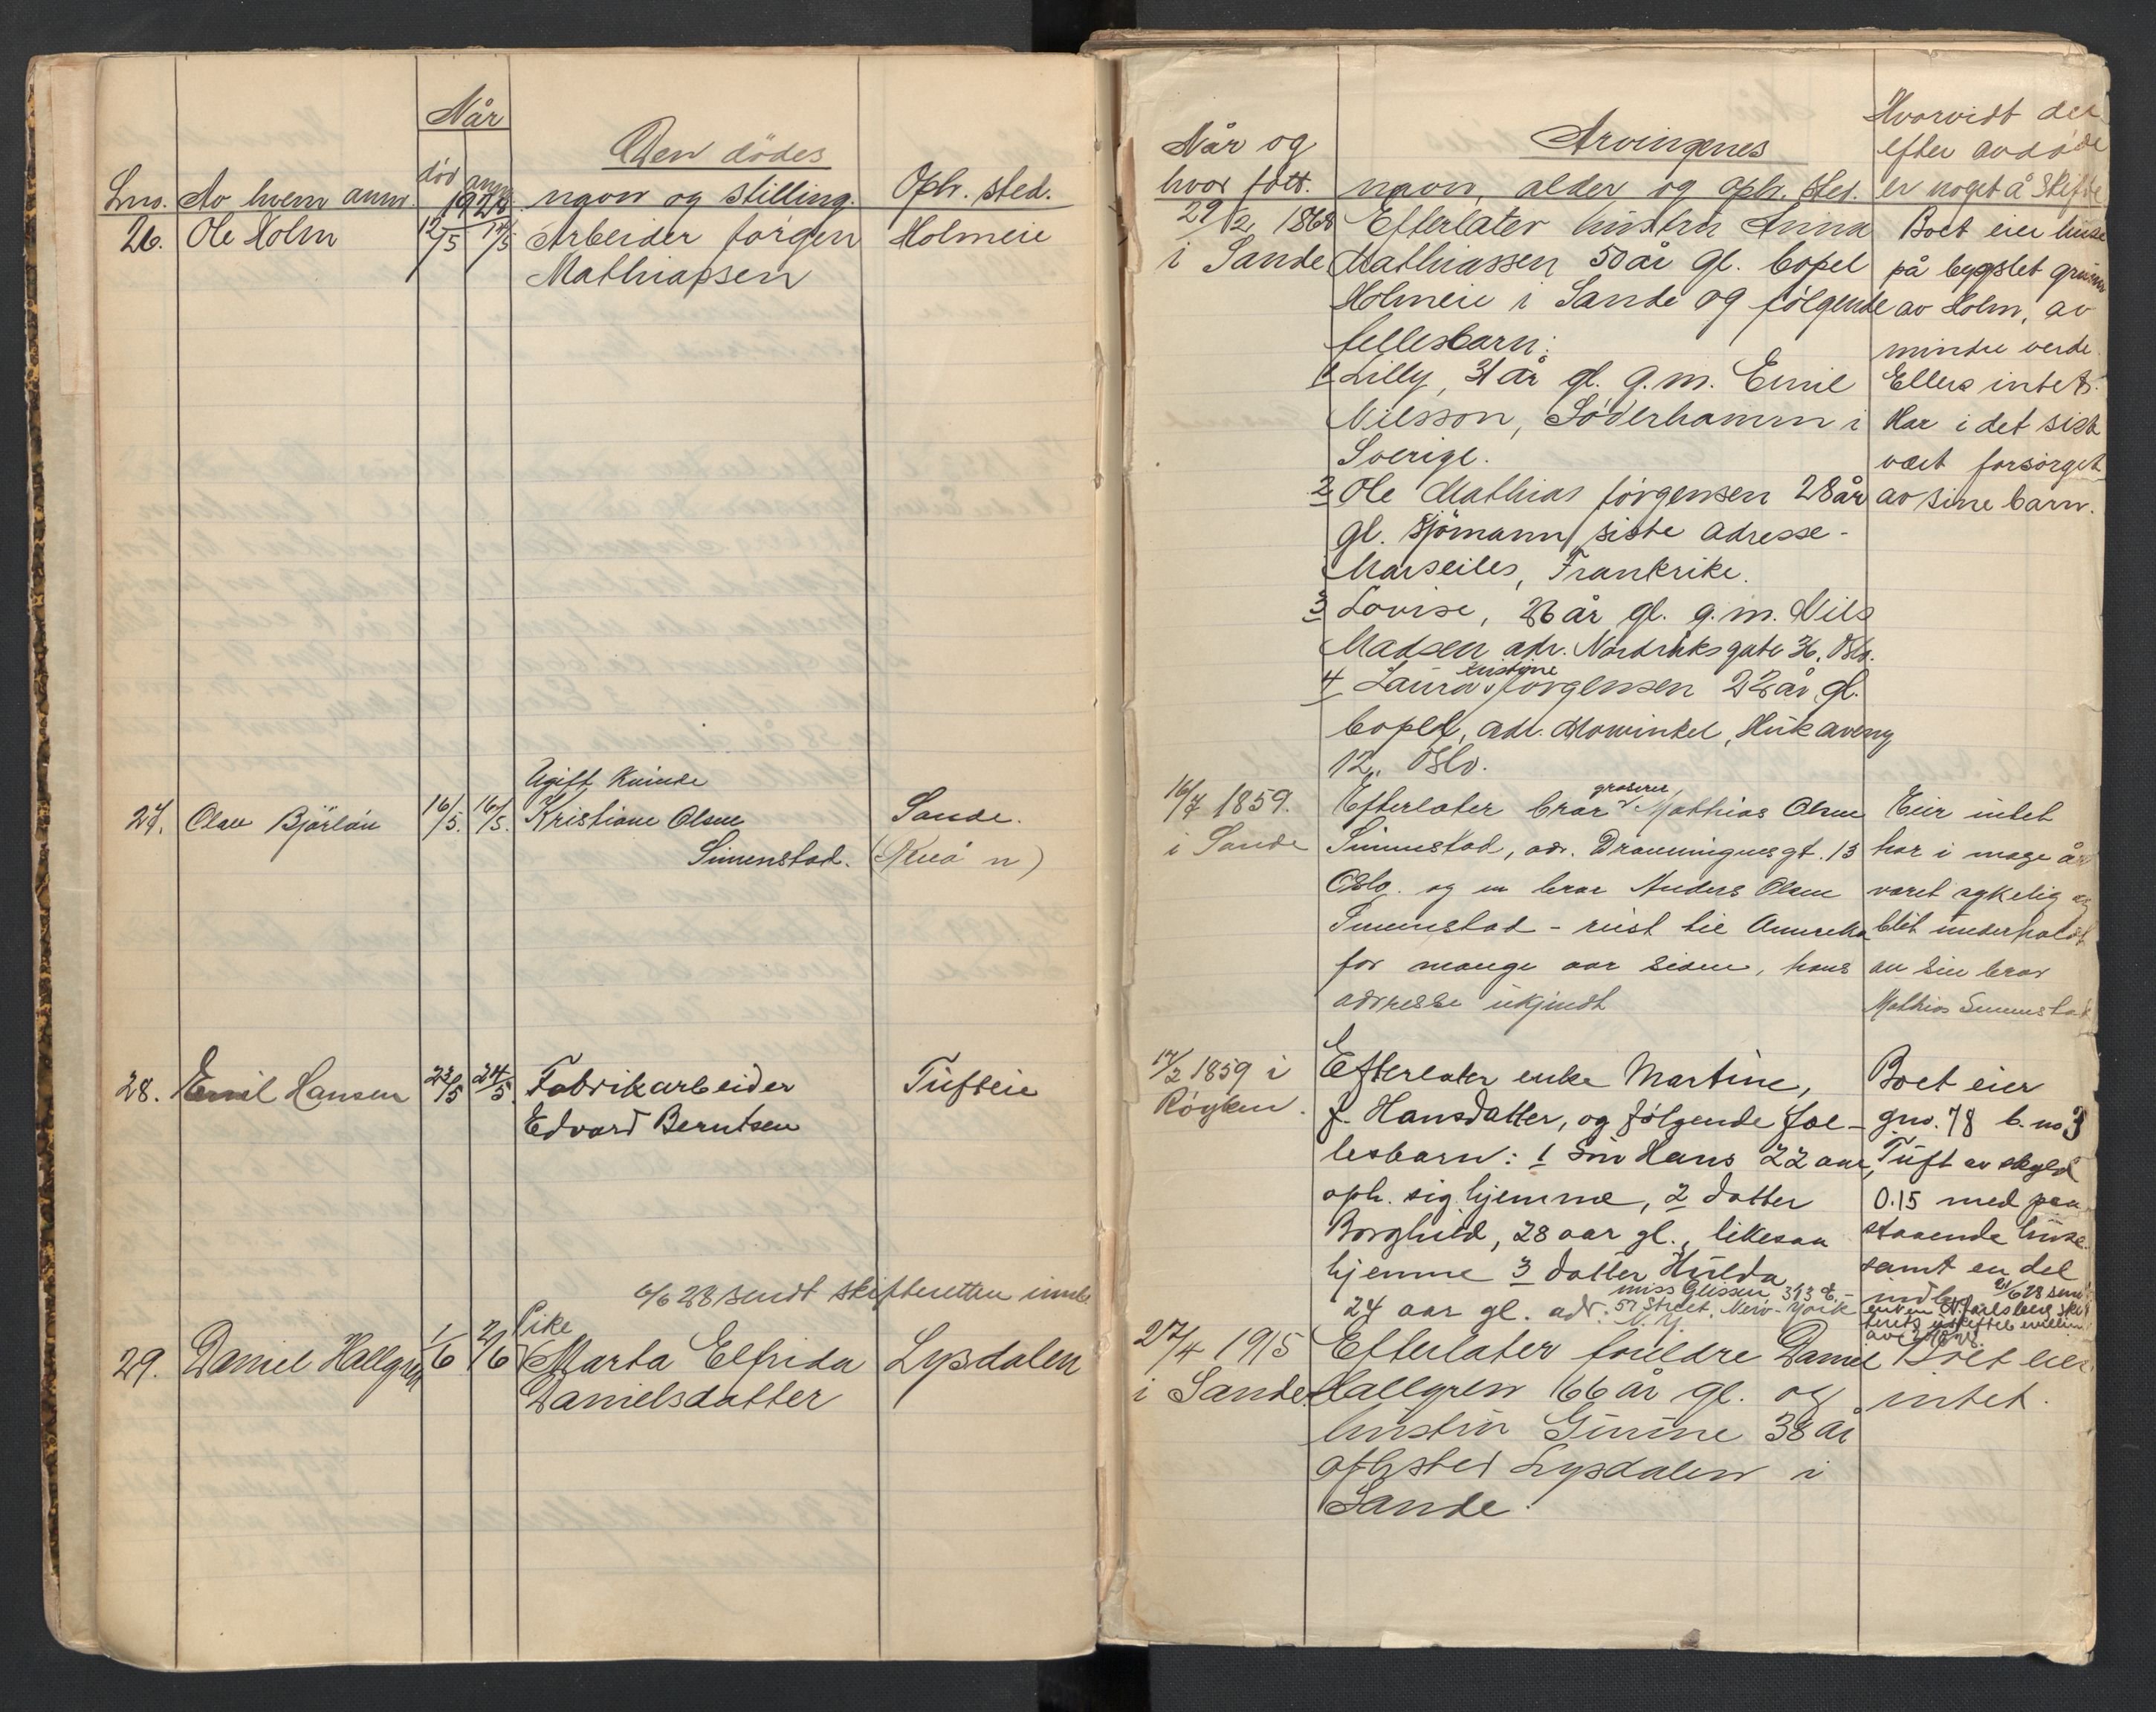 Når
Den dödes
Lno. Av hvem anm. död anm. 1928. navn og stilling. Oph. sted.
26. Ole Holm 12/5 14/5 Arbeider Jörgen Holmeie
Mathiassen
Ugift Kvinde
27. Olav Björløu 16/5. 16/5. Kristiane Olsen Sande.
Simenstad. (Revå n)
28. Emil Hansen 22/5 24/5. Fabrikarbeider Tufteie
Edvard Berntsen
6/6 28 sendt skifteretten innb.
Pike
29. Daniel Hallgren 1/6 2/6 Marta Elfrida Lysdalen
Danielsdatter
Når og
hvor fött.
Arvingenes
navn, alder og oph. sted.
Hvorvidt det
efter avdöde
er noget å skifte
29/2 1868
i Sande
Efterlater hustru Anna
Mathiassen 50 år gl. bopel
Holmeie i Sande og fölgende
fellesbarn:
1 Lilly, 31 år gl. g.m. Emil
Nilsson, Söderhamn i
Sverige.
2 Ole Mathias Jörgensen 28 år
gl. sjömann, siste adresse-
Marseiles, Frankrike.
3 Lovise, 26 år gl. g.m. Nils
Madsen adr. Nordråksgate 36, Oslo.
kristine
4 Laura Jörgensen 22 år gl.
bopel, adr. Mowinkel, Huk aveny
12, Oslo.
Boet eier huse
på bygslet grunn
av Holm, av
mindre verde.
Ellers intet.
Har i det siste
vært forsörget
av sine barn.
16/7 1859.
i Sande
grosserer
Efterlater bror Mathias Olsen
Simenstad, adr. Dronningensgt. 13
Oslo. og en bror Anders Olsen
Simenstad - reist til Amerika
for mange aar siden, hans
adresse ukjendt
Eier intet
har i mage år
været sykelig og
blit underholdt
av sin bror
Mathias Simenstad
17/2 1859 i
Röyken.
Efterlater enke Martine,
f. Hansdatter, og fölgende fæl-
lesbarn: 1 sön Hans 22 aar,
oph. sig hjemme, 2 datter
Borghild, 28 aar gl., likesaa
hjemme 3 datter Hulda
miss Glissen, 313 E.-
24 aar gl. adr: 57 Street. New-York
N. Y.
Boet eier
gno. 78 b. no 3
Tuft av skyld
0.15 med paa
staaende huse
samt en del
indbo
27/4 1915
i Sande.
Efterlater foreldre Daniel
Hallgren 66 år gl. og
hustru Gunine 38 år
opholdsted Lysdalen i
Sande.
Boet eier
intet.